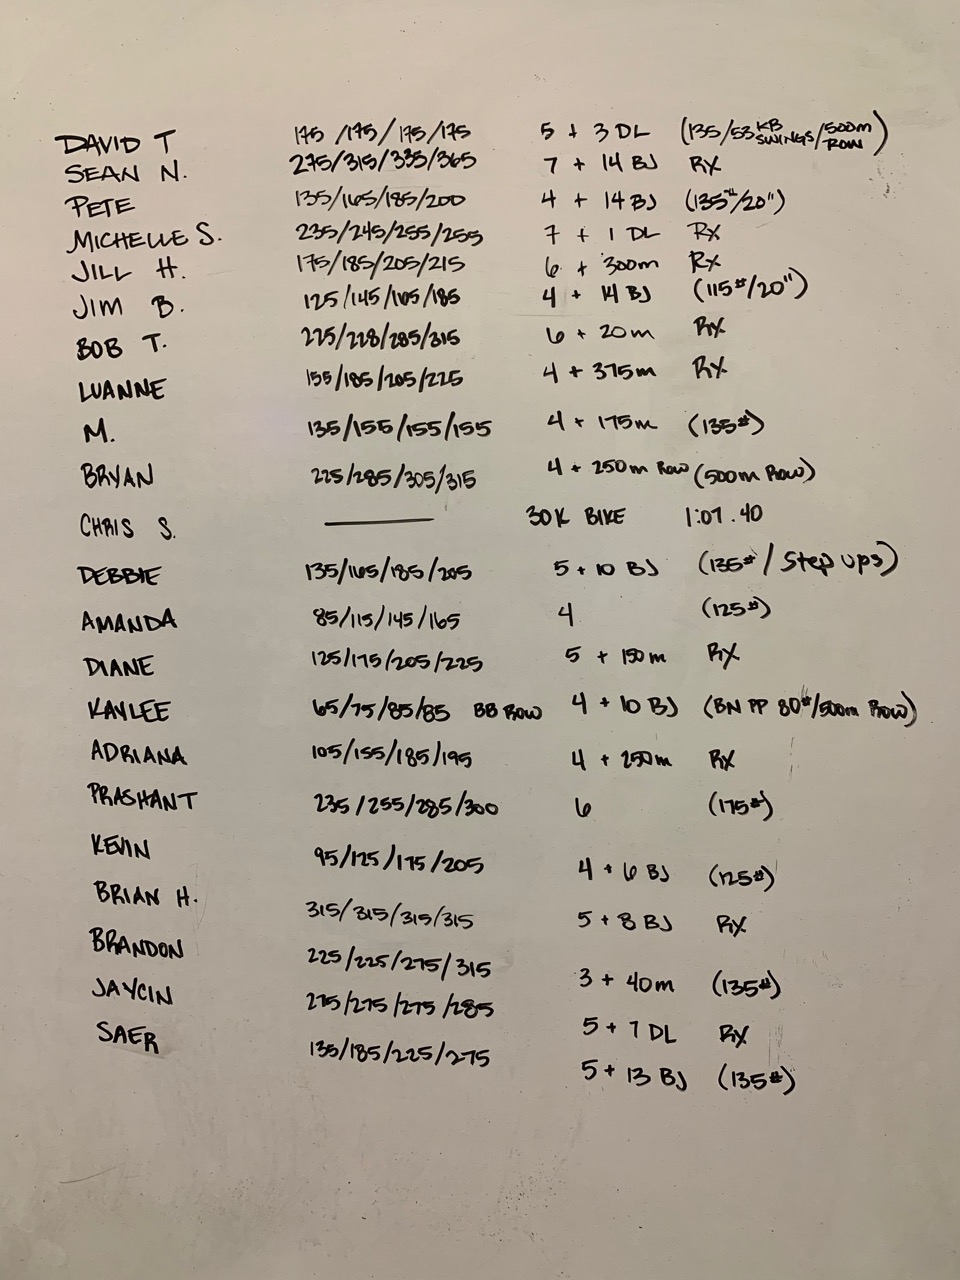 DAVID T 175/175/175/175 5 + 3 DL (135/53 KB SWINGS/500m ROW)
SEAN N. 275/315/335/365 7 + 14 BJ RX
PETE 135/165/185/200 4 + 14 BJ (135#/20")
MICHELLE S. 235/245/255/255 7 + 1 DL RX
JILL H. 175/185/205/215 6 + 300m RX
JIM B. 125/145/165/185 4 + 14 BJ (115#/20")
BOB T. 225/228/285/315 6 + 20m RX
LUANNE 155/185/205/225 4 + 375m RX
M. 135/155/155/155 4 + 175m (135#)
BRYAN 225/285/305/315 4 + 250m ROW (500m ROW)
CHRIS S. ——— 30K BIKE 1:07.40
DEBBIE 135/165/185/205 5 + 10 BJ (135#/Step ups)
AMANDA 85/115/145/165 4 (125#)
DIANE 125/175/205/225 5 + 150m RX
KAYLEE 65/75/85/85 BB ROW 4 + 10 BJ (BN PP 80#/500m ROW)
ADRIANA 105/155/185/195 4 + 250m RX
PRASHANT 235/255/285/300 6 (175#)
KEVIN 95/125/175/205 4 + 6 BJ (125#)
BRIAN H. 315/315/315/315 5 + 8 BJ RX
BRANDON 225/225/275/315 3 + 40m (135#)
JAYCIN 275/275/275/285 5 + 7 DL RX
SAER 135/185/225/275 5 + 13 BJ (135#)